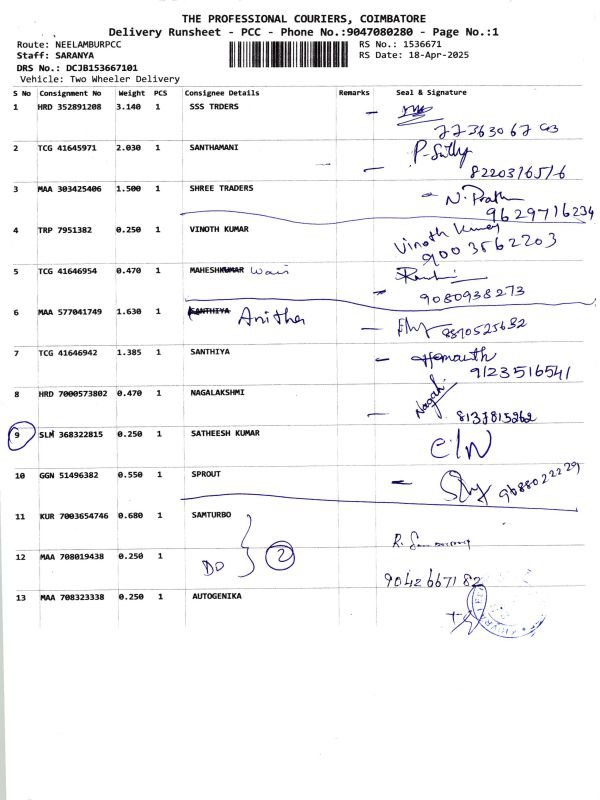 THE PROFESSIONAL COURIERS, COIMBATORE
Delivery Runsheet - PCC - Phone No.:9047080280 - Page No.:1
Route: NEELAMBURPCC RS No.: 1536671
Staff: SARANYA RS Date: 18-Apr-2025
DRS No.: DCJB153667101
Vehicle: Two Wheeler Delivery
S No Consignment No Weight PCS Consignee Details Remarks Seal & Signature
1 HRD 352891208 3.140 1 SSS TRDERS
7736306703
2 TCG 41645971 2.030 1 SANTHAMANI P-Sathy
3 MAA 303425406 1.500 1 SHREE TRADERS
9629716234
4 TRP 7951382 0.250 1 VINOTH KUMAR Vinoth Kumar
9003562203
5 TCG 41646954 0.470 1 MAHESHKUMAR
9080938273
6 MAA 577041749 1.630 1 SANTHIYA Anitha
8870525632
7 TCG 41646942 1.385 1 SANTHIYA Hemanth
9123516541
8 HRD 7000573802 0.470 1 NAGALAKSHMI Nagal
8137815262
9 SLM 368322815 0.250 1 SATHEESH KUMAR C/N
10 GGN 51496382 0.550 1 SPROUT 9688022229
11 KUR 7003654746 0.680 1 SAMTURBO
12 MAA 708019438 0.250 1 DO 2
9042667182
13 MAA 708323338 0.250 1 AUTOGENIKA